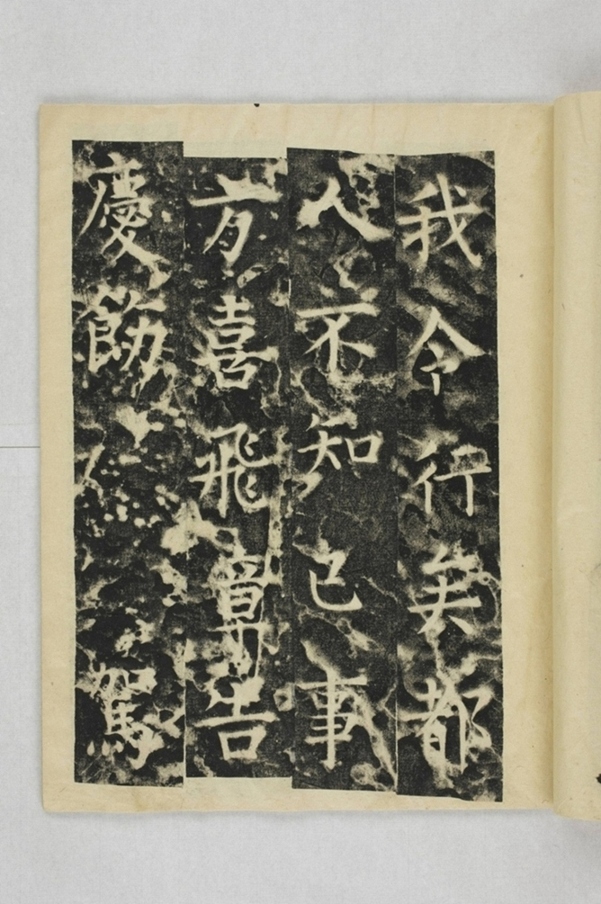 我令行矣都
人不知已事
方喜飛章告
慶飭駕